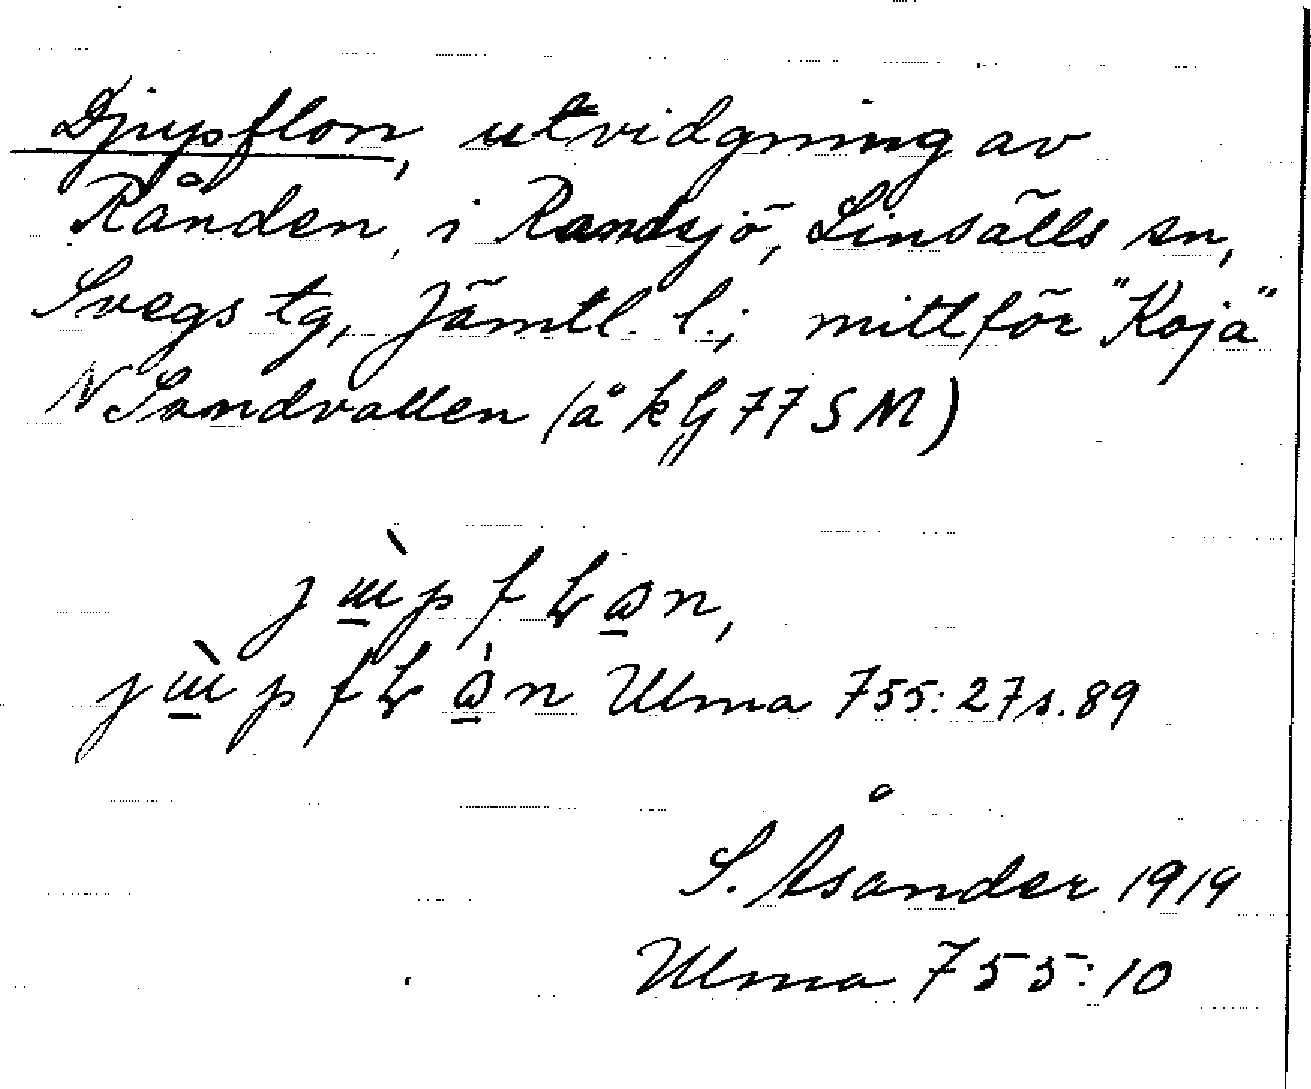 Djupflon, utvidgning av
Rånden, i Randsjö, Linsälls sn,
Svegs tg, Jämtl. l.; mittför "Koja"
N Sandvallen (å k G 77 S M)
S. Åsander 1919
Ulma 755:27 s. 89
Ulma 755:10